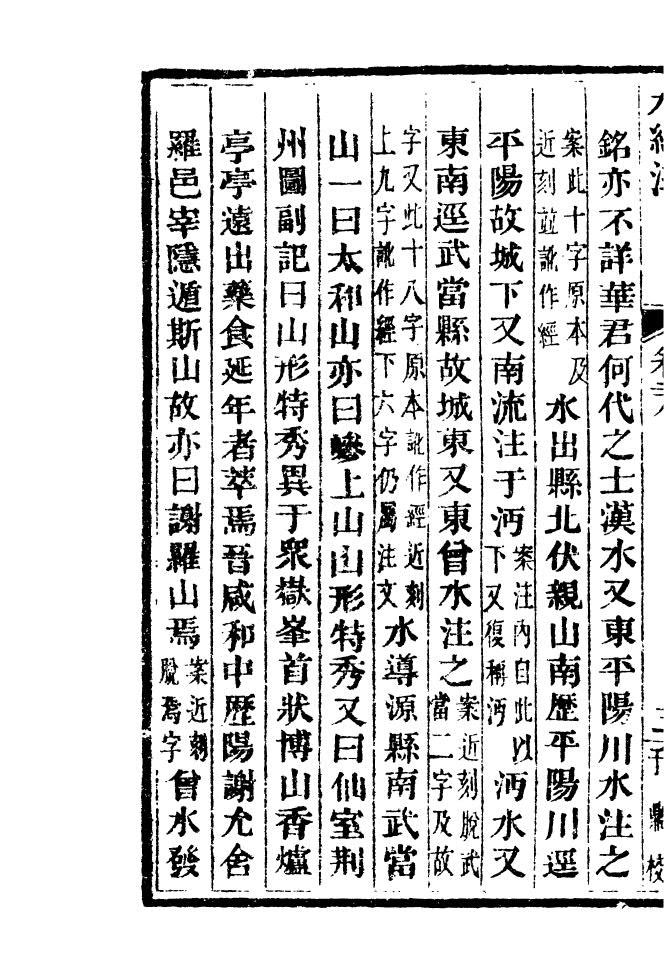 水經注
卷二八
銘亦不詳華君何代之士漢水又東平陽川水注之
案此十字原本及近刻並訛作經水出縣北伏親山南歷平陽川逕
平陽故城下又南流注于沔案注內自此以下又復稱沔沔水又
東南逕武當縣故城東又東曾水注之案近刻脫武當二字及故
字又此十八字原本訛作經近刻上九字訛作經下六字仍屬注文水導源縣南武當
山一曰太和山亦曰嵾上山山形特秀又曰仙室荆
州圖副記曰山形特秀異于眾嶽峯首狀博山香爐
亭亭遠出藥食延年者萃焉晉咸和中歷陽謝允舍
羅邑宰隱遁斯山故亦曰謝羅山焉案近刻脫焉字曾水發